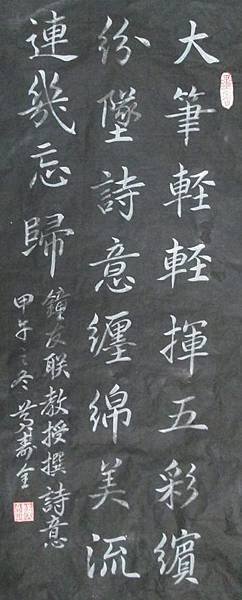 大筆軽軽揮五彩繽
紛墜詩意纏綿美流
連幾忘歸
鐘友联教授撰詩意
甲午之冬 壽全